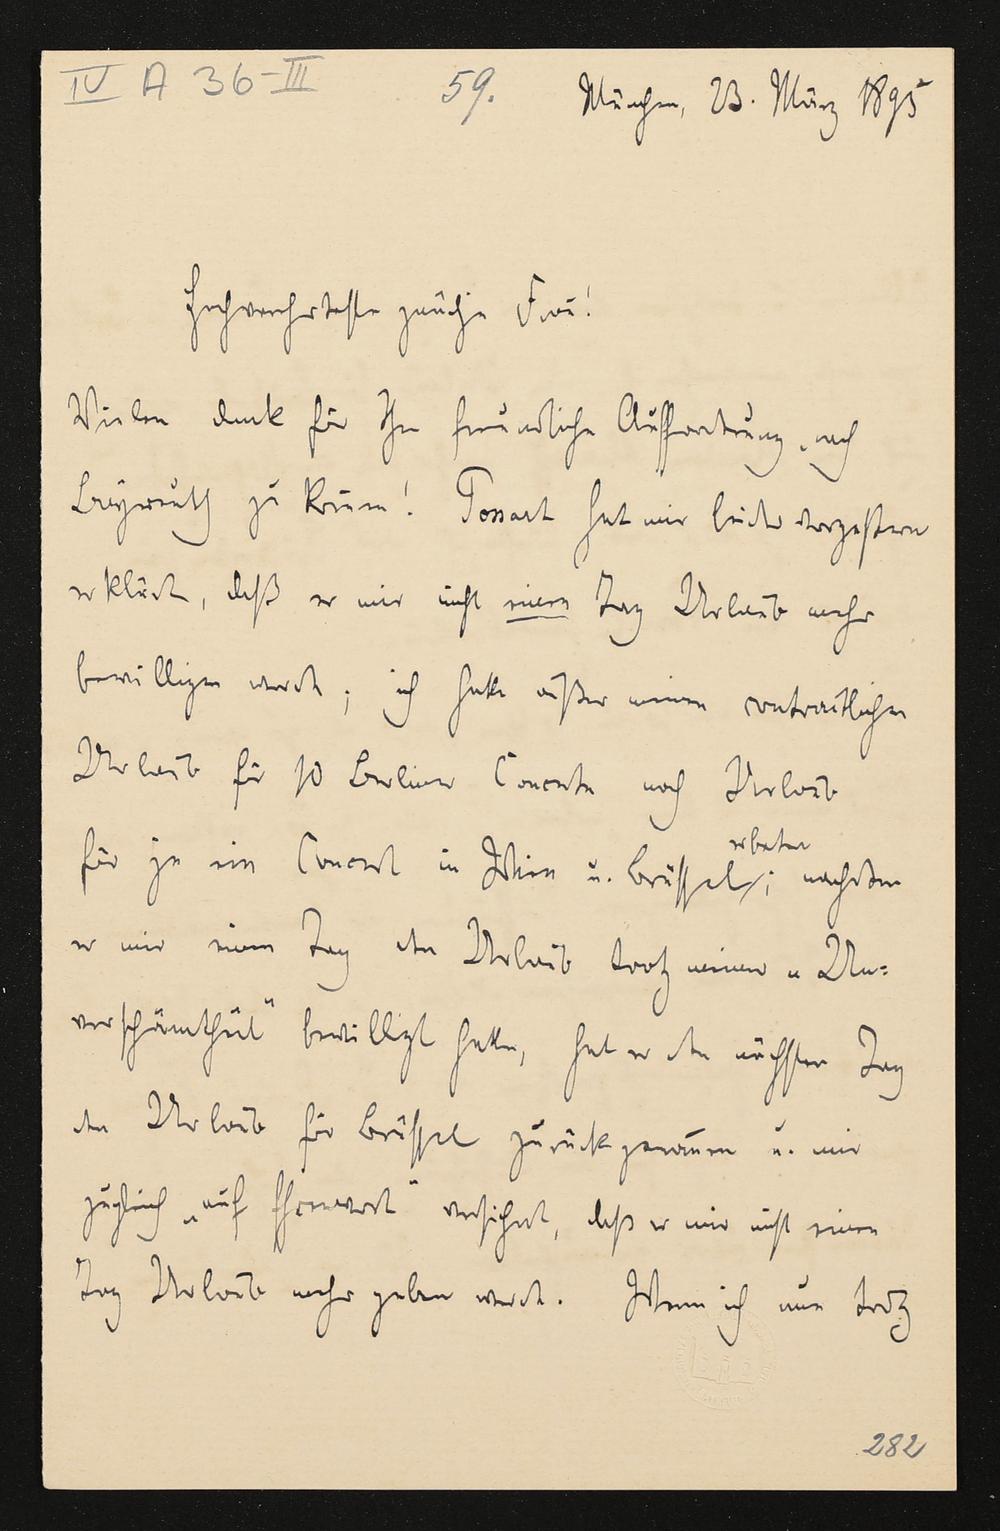 IV A 36-III 59. München, 23. März 1895
Hochverehrteste gnädige Frau!
Vielen Dank für Ihre freundliche Aufforderung, nach
Bayreuth zu kommen! Possart hat mir leider vorgestern
erklärt, daß er mir nicht einen Tag Urlaub mehr
bewilligen werde; ich hatte außer meinem contractlichen
Urlaub für 10 Berliner Concerte noch Urlaub
für je ein Concert in Wien u. Brüssel erbeten; nachdem
er mir einen Tag den Urlaub trotz meiner „Un-
verschämtheit“ bewilligt hatte, hat er den nächsten Tag
den Urlaub für Brüssel zurückgenommen u. mir
zugleich „auf Ehrenwort“ versichert, daß er mir nicht einen
Tag Urlaub mehr geben werde. Wenn ich nun trotz
282